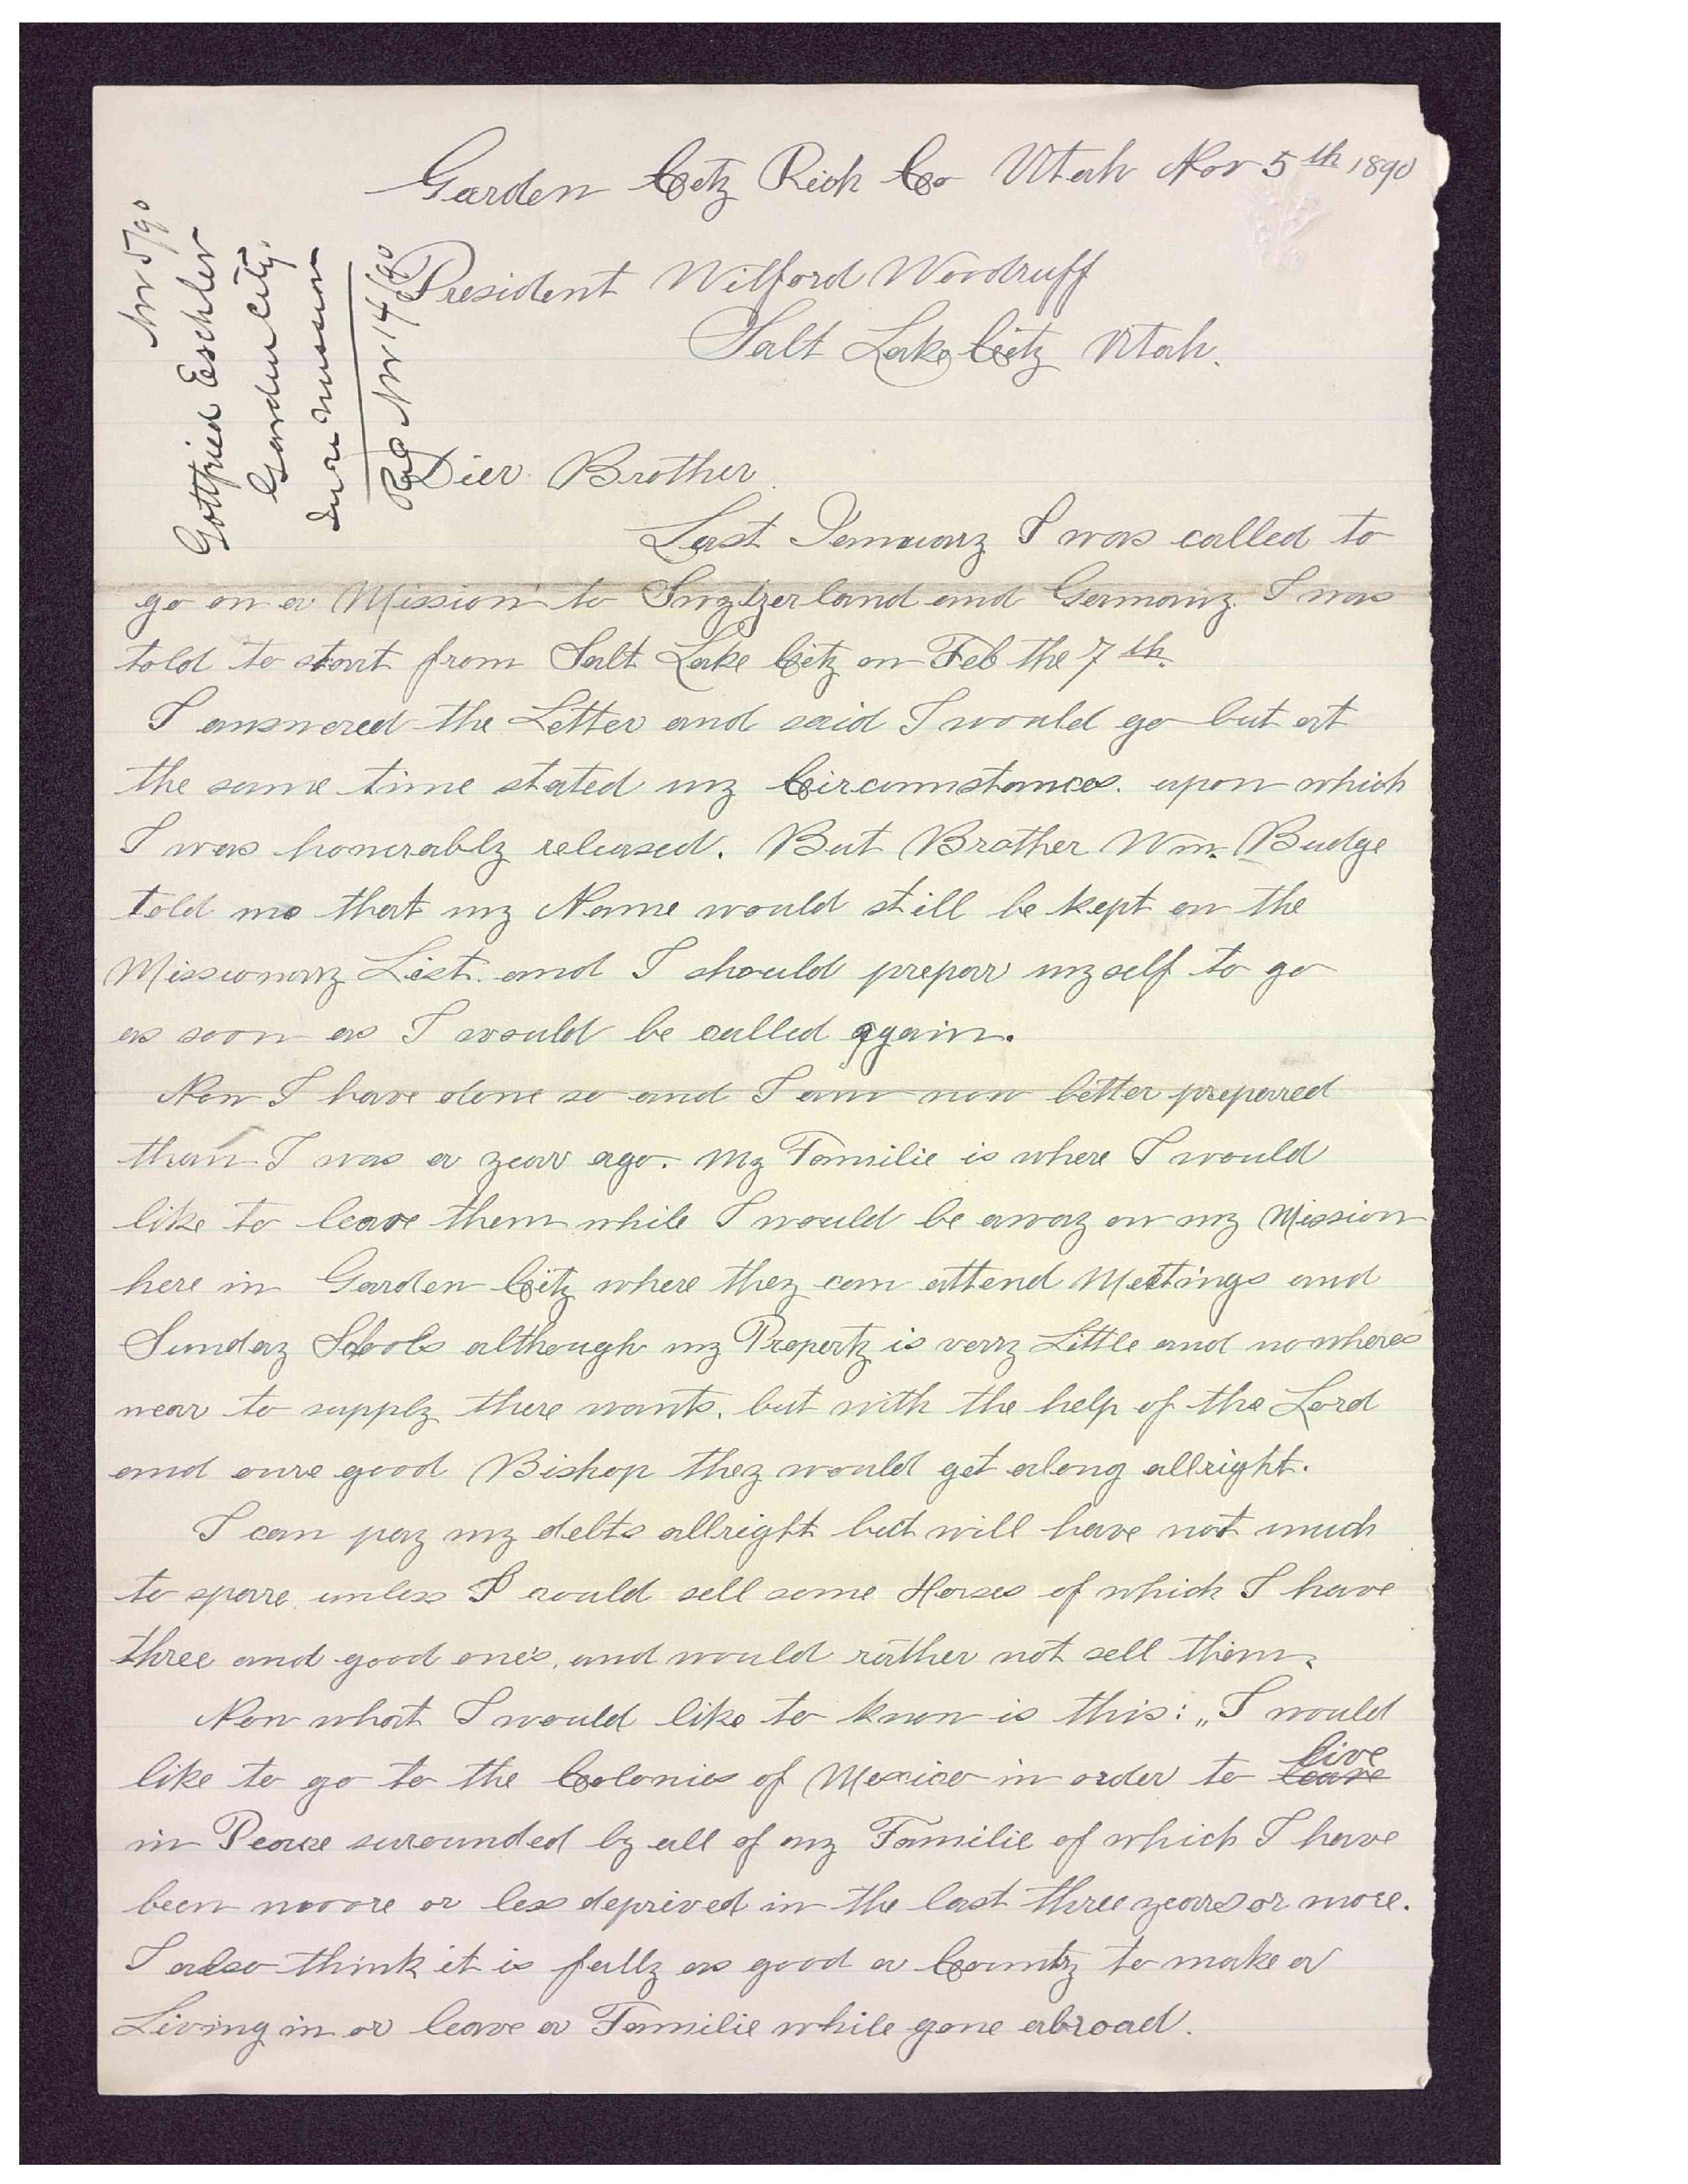 Garden City Rich Co Utah Nov 5th 1890
Nov 5/90
Gottfried Eschler
Garden City.
In re mission
Rec Nov 14/90
President Wilford Woodruff
Salt Lake City Utah.
Dier Brother
Last Januarz I was called to
go on a Mission to Swztzerland and Germany. I was
told to start from Salt Lake City on Feb the 7th.
I answered the Letter and said I would go but at
the same time stated my Circumstances. upon which
I was honerably released. But Brother Wm. Budge
told me that my Name would still be kept on the
Missionary List. and I should prepair myself to go
as soon as I would be called again.
Now I have done so and I am now better prepared
than I was a year ago. My Familie is where I would
like to leave them while I would be away on my Mission
here in Garden City where they can attend Meetings and
Sunday Schools although my Property is verry Little and nowheres
near to supply there wants. but with the help of the Lord
and oure good Bishop they would get along allright.
I can pay my debts allright but will have not much
to spare unless I could sell some Horses of which I have
three and good one's, and would rather not sell them.
Now what I would like to know is this: „I would
like to go to the Colonies of Mexico in order to leave live
in Peace surounded by all of my Familie of which I have
been moore or less deprived in the last three years or more.
I also think it is fully as good a Country to make a
Living in or leave a Familie while gone abroad.